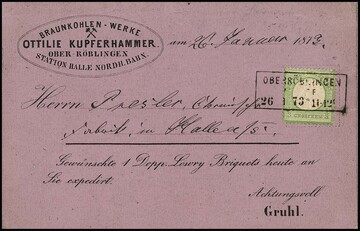 BRAUNKOHLEN-WERKE
OTTILIE KUPFERHAMMER.
OBER-RÖBLINGEN
STATION HALLE NORDH. BAHN.
am 26 Januar 1873.
OBERRÖBLINGEN
26 1 73 11-12
Herrn Chemische
Fabrik in Halle a/S.
Gewünschte 1 Dopp. Lowry Briquets heute an
Sie expedirt.
Achtungsvoll
Gruhl.